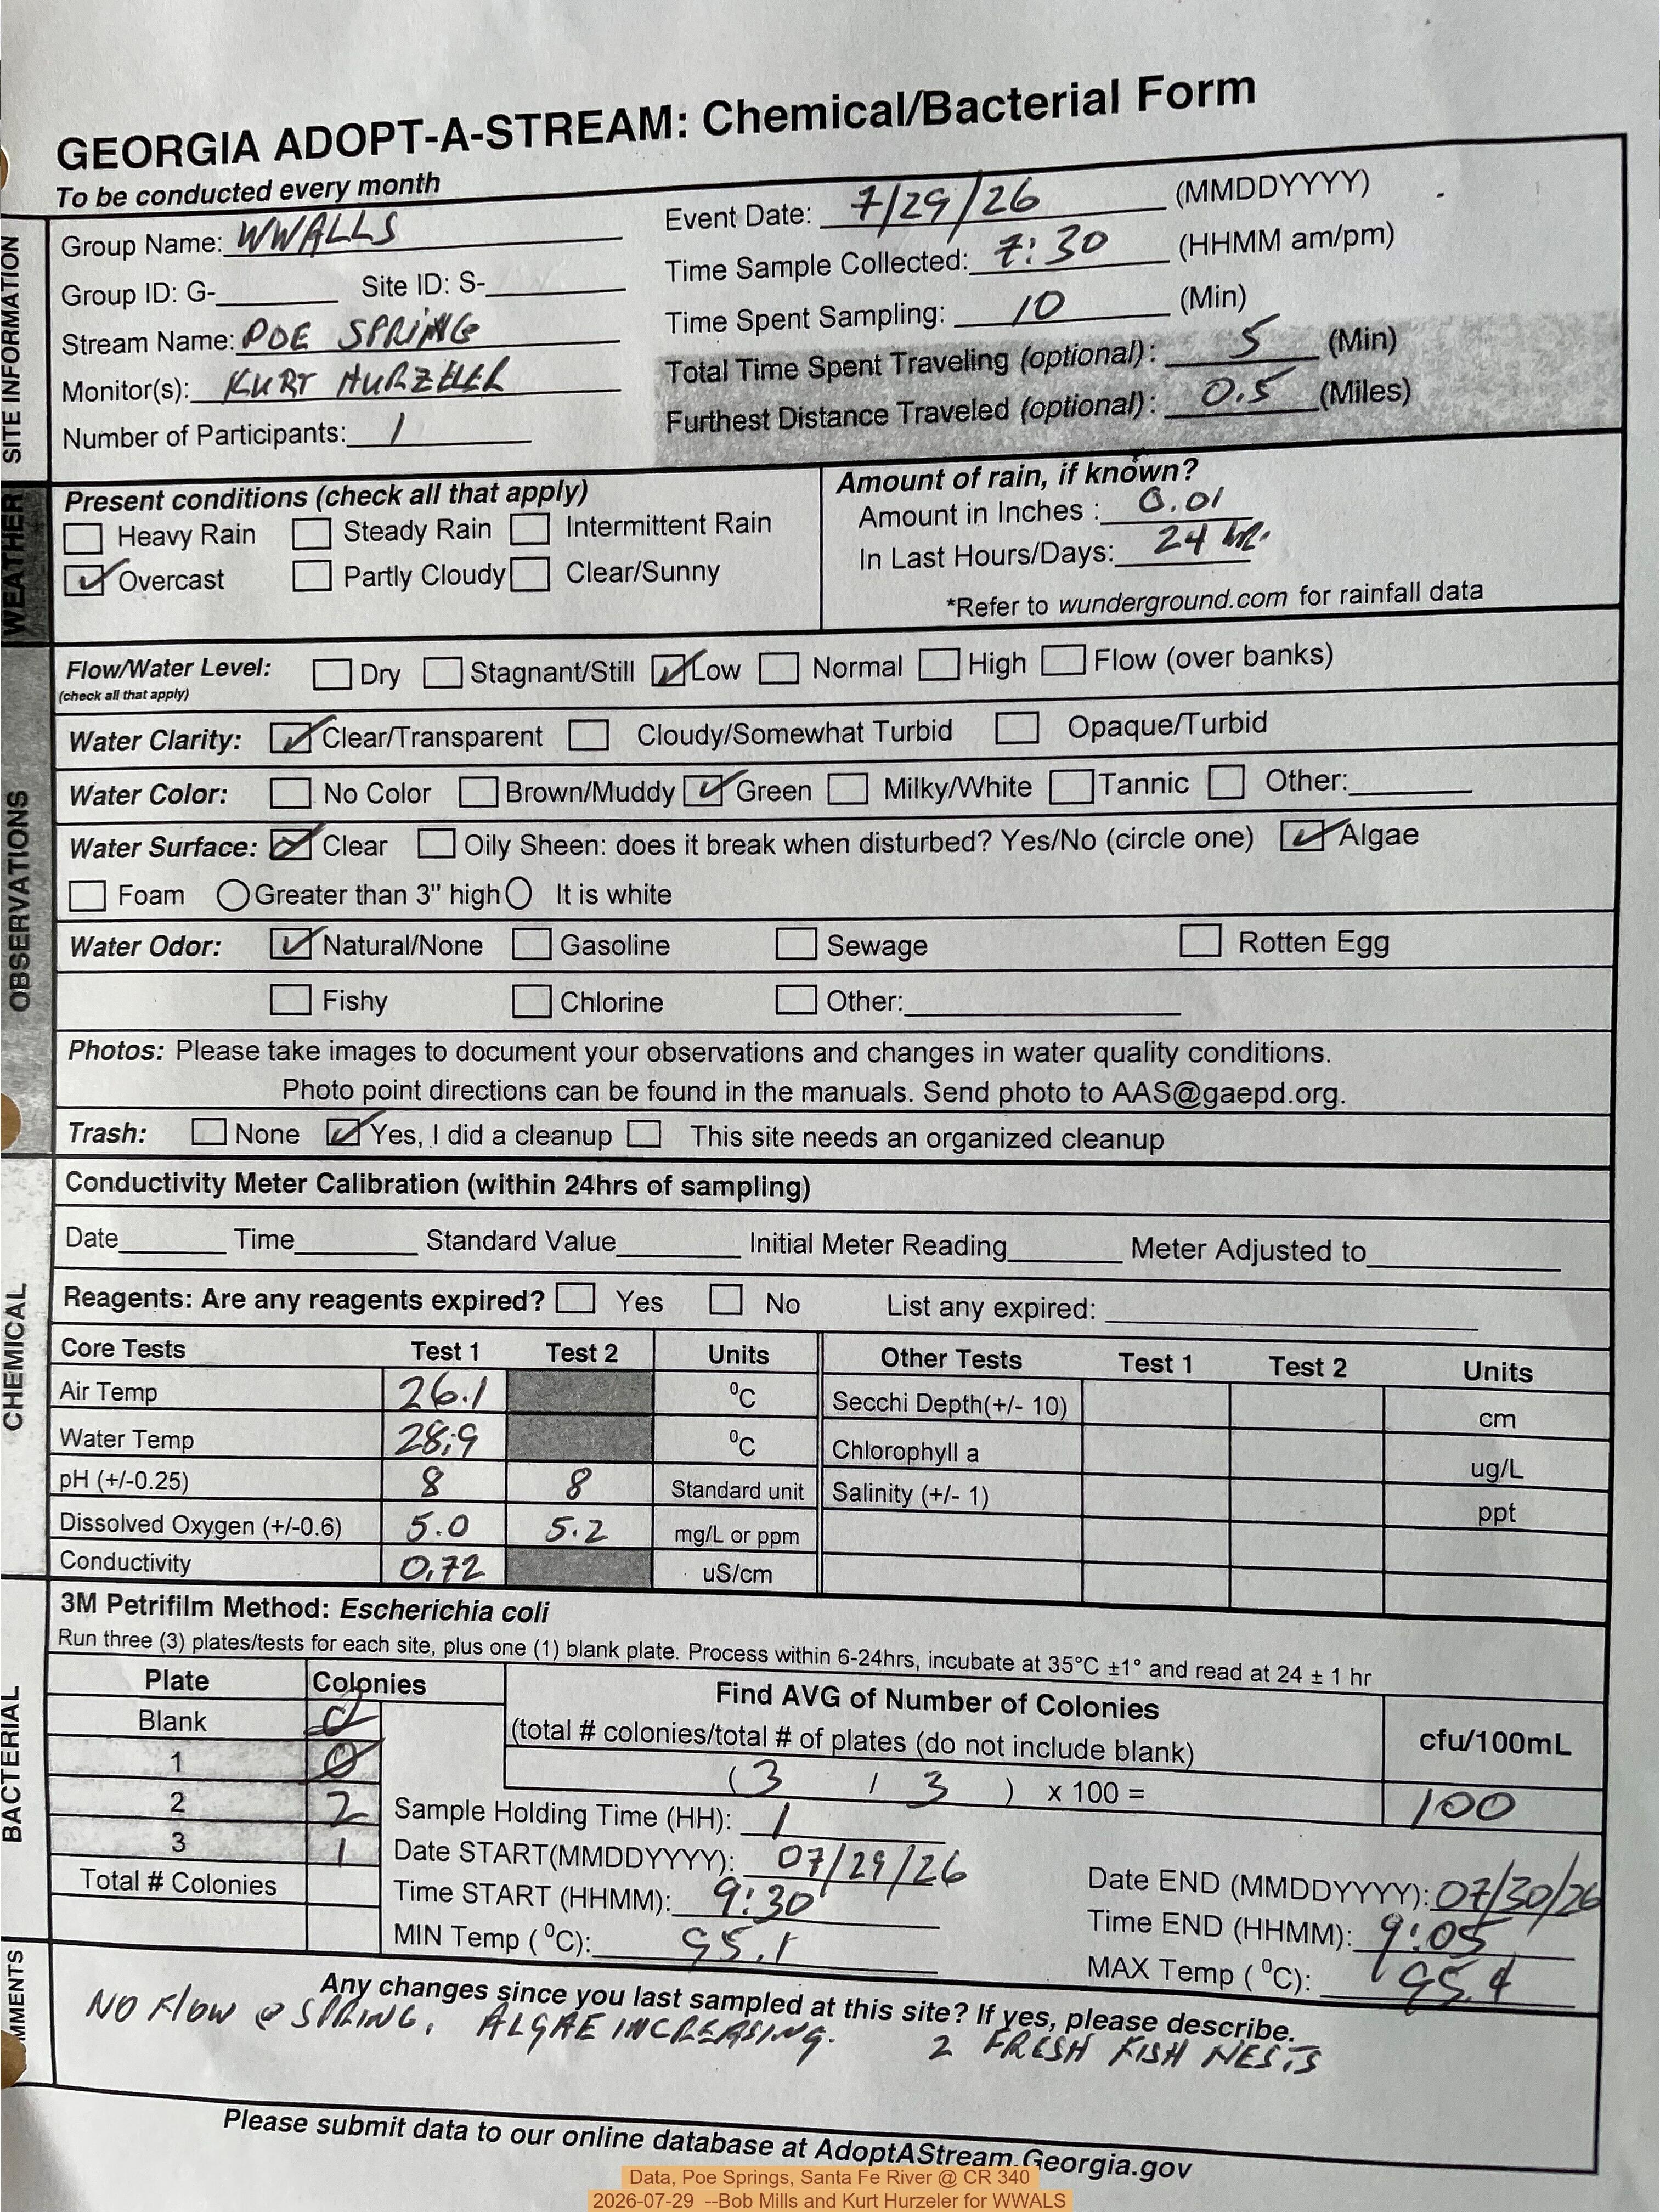 GEORGIA ADOPT-A-STREAM: Chemical/Bacterial Form
To be conducted every month
SITE INFORMATION
Group Name: WWALLS
Group ID: G-________ Site ID: S-________
Stream Name: POE SPRING
Monitor(s): KURT HURZELER
Number of Participants: 1
Event Date: 7/29/26 (MMDDYYYY)
Time Sample Collected: 7:30 (HHMM am/pm)
Time Spent Sampling: 10 (Min)
Total Time Spent Traveling (optional): 5 (Min)
Furthest Distance Traveled (optional): 0.5 (Miles)
WEATHER
Present conditions (check all that apply)
Heavy Rain Steady Rain Intermittent Rain
✓ Overcast Partly Cloudy Clear/Sunny
Amount of rain, if known?
Amount in Inches : 0.01
In Last Hours/Days: 24 hr.
*Refer to wunderground.com for rainfall data
OBSERVATIONS
Flow/Water Level: Dry Stagnant/Still ✓ Low Normal High Flow (over banks)
(check all that apply)
Water Clarity: ✓ Clear/Transparent Cloudy/Somewhat Turbid Opaque/Turbid
Water Color: No Color Brown/Muddy ✓ Green Milky/White Tannic Other:________
Water Surface: ✓ Clear Oily Sheen: does it break when disturbed? Yes/No (circle one) ✓ Algae
Foam Greater than 3" high It is white
Water Odor: ✓ Natural/None Gasoline Sewage Rotten Egg
Fishy Chlorine Other:________
Photos: Please take images to document your observations and changes in water quality conditions.
Photo point directions can be found in the manuals. Send photo to AAS@gaepd.org.
Trash: None ✓ Yes, I did a cleanup This site needs an organized cleanup
CHEMICAL
Conductivity Meter Calibration (within 24hrs of sampling)
Date________ Time________ Standard Value________ Initial Meter Reading________ Meter Adjusted to________
Reagents: Are any reagents expired? Yes No List any expired: ________
Core Tests Test 1 Test 2 Units Other Tests Test 1 Test 2 Units
Air Temp 26.1 ⁰C Secchi Depth(+/- 10) cm
Water Temp 28.9 ⁰C Chlorophyll a ug/L
pH (+/-0.25) 8 8 Standard unit Salinity (+/- 1) ppt
Dissolved Oxygen (+/-0.6) 5.0 5.2 mg/L or ppm
Conductivity 0.72 uS/cm
BACTERIAL
3M Petrifilm Method: Escherichia coli
Run three (3) plates/tests for each site, plus one (1) blank plate. Process within 6-24hrs, incubate at 35°C ±1° and read at 24 ± 1 hr
Plate Colonies
Blank
1 0
2 2
3 1
Total # Colonies
Find AVG of Number of Colonies
(total # colonies/total # of plates (do not include blank)
( 3 / 3 ) x 100 =
cfu/100mL
100
Sample Holding Time (HH): 1
Date START(MMDDYYYY): 07/29/26
Time START (HHMM): 9:30
MIN Temp ( ⁰C): 95.1
Date END (MMDDYYYY): 07/30/26
Time END (HHMM): 9:05
MAX Temp ( ⁰C): 95.4
MMENTS
Any changes since you last sampled at this site? If yes, please describe.
NO FLOW @ SPRING. ALGAE INCREASING. 2 FRESH FISH NESTS
Please submit data to our online database at AdoptAStream.Georgia.gov
Data, Poe Springs, Santa Fe River @ CR 340
2026-07-29 --Bob Mills and Kurt Hurzeler for WWALS